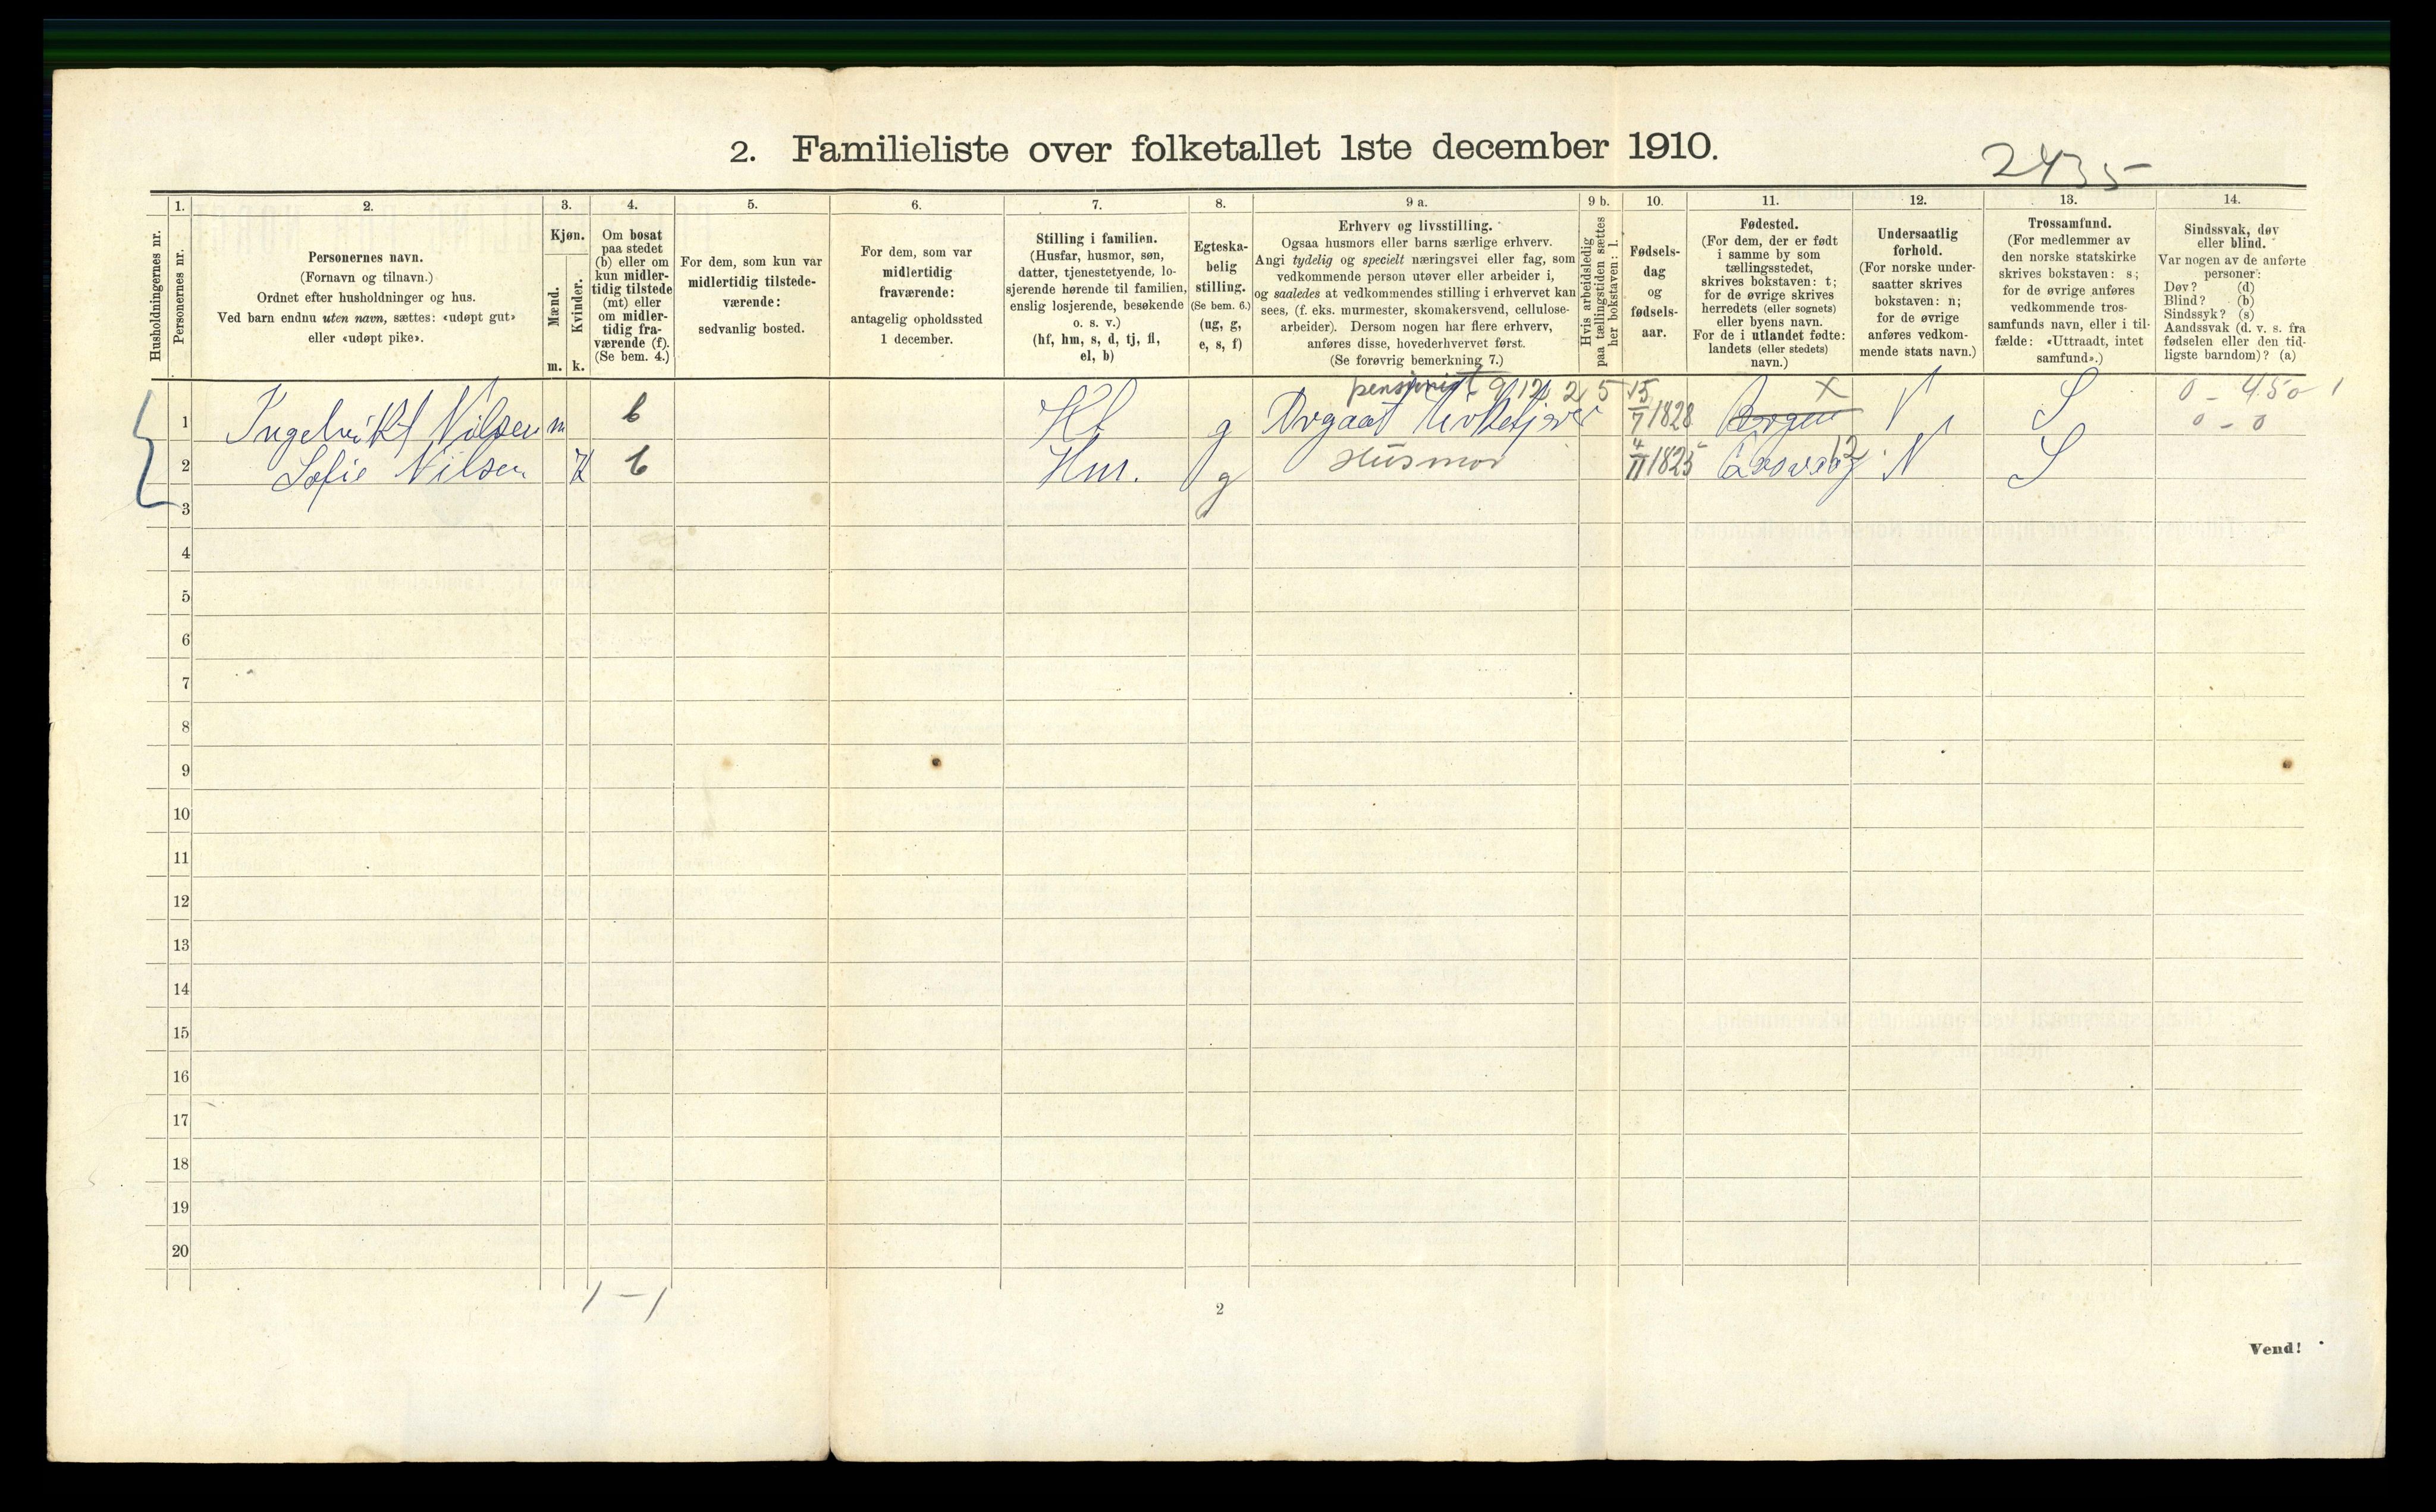 2. Familieliste over folketallet 1ste december 1910.
2435
Husholdningernes nr.
1.
Personernes nr.
2.
Personernes navn.
(Fornavn og tilnavn.)
Ordnet efter husholdninger og hus.
Ved barn endnu uten navn, sættes: «udøpt gut»
eller «udøpt pike».
3.
Kjøn.
Mænd.
Kvinder.
m. k.
4.
Om bosat
paa stedet
(b) eller om
kun midler-
tidig tilstede
(mt) eller
om midler-
tidig fra-
værende (f).
(Se bem. 4.)
5.
For dem, som kun var
midlertidig tilstede-
værende:
sedvanlig bosted.
6.
For dem, som var
midlertidig
fraværende:
antagelig opholdssted
1 december.
7.
Stilling i familien.
(Husfar, husmor, søn,
datter, tjenestetyende, lo-
sjerende hørende til familien,
enslig losjerende, besøkende
o. s. v.)
(hf, hm, s, d, tj, fl,
el, b)
8.
Egteska-
belig
stilling.
(Se bem. 6.)
(ug, g,
e, s, f)
9 a.
Erhverv og livsstilling.
Ogsaa husmors eller barns særlige erhverv.
Angi tydelig og specielt næringsvei eller fag, som
vedkommende person utøver eller arbeider i,
og saaledes at vedkommendes stilling i erhvervet kan
sees, (f. eks. murmester, skomakersvend, cellulose-
arbeider). Dersom nogen har flere erhverv,
anføres disse, hovederhvervet først.
(Se forøvrig bemerkning 7.)
9 b.
Hvis arbeidsledig
paa tællingstiden sættes
her bokstaven: l.
10.
Fødsels-
dag
og
fødsels-
aar.
11.
Fødested.
(For dem, der er født
i samme by som
tællingsstedet,
skrives bokstaven: t;
for de øvrige skrives
herredets (eller sognets)
eller byens navn.
For de i utlandet fødte:
landets (eller stedets)
navn.)
12.
Undersaatlig
forhold.
(For norske under-
saatter skrives
bokstaven: n;
for de øvrige
anføres vedkom-
mende stats navn.)
13.
Trossamfund.
(For medlemmer av
den norske statskirke
skrives bokstaven: s;
for de øvrige anføres
vedkommende tros-
samfunds navn, eller i til-
fælde: «Uttraadt, intet
samfund».)
14.
Sindssvak, døv
eller blind.
Var nogen av de anførte
personer:
Døv? (d)
Blind? (b)
Sindssyk? (s)
Aandssvak (d. v. s. fra
fødselen eller den tid-
ligste barndom)? (a)
pensjonist 9 12 2 5 X 0 - 450 1
1 Nilsen m b Hf g 15/7 1828 Bergen N S 0 - 0
2 Sofie Nilsen K b Hm. g Husmor 4/11 1825 12 N S
3
4
5
6
7
8
9
10
11
12
13
14
15
16
17
18
19
20
1 - 1
2
Vend!